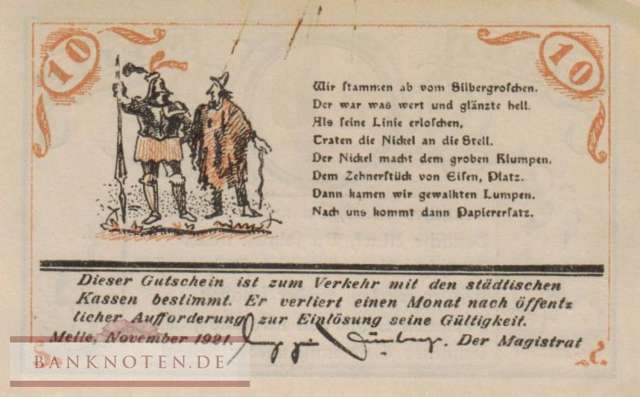 10
10
Wir stammen ab vom Silbergroschen.
Der war was wert und glänzte hell.
Als seine Linie erloschen,
Traten die Nickel an die Stell.
Der Nickel macht dem groben Klumpen,
Dem Zehnerstück von Eisen, Platz.
Dann kamen wir gewalkten Lumpen.
Nach uns kommt dann Papierersatz.
Dieser Gutschein ist zum Verkehr mit den städtischen
Kassen bestimmt. Er verliert einen Monat nach öffent=
licher Aufforderung zur Einlösung seine Gültigkeit.
Melle, November 1921. Der Magistrat
BANKNOTEN.DE